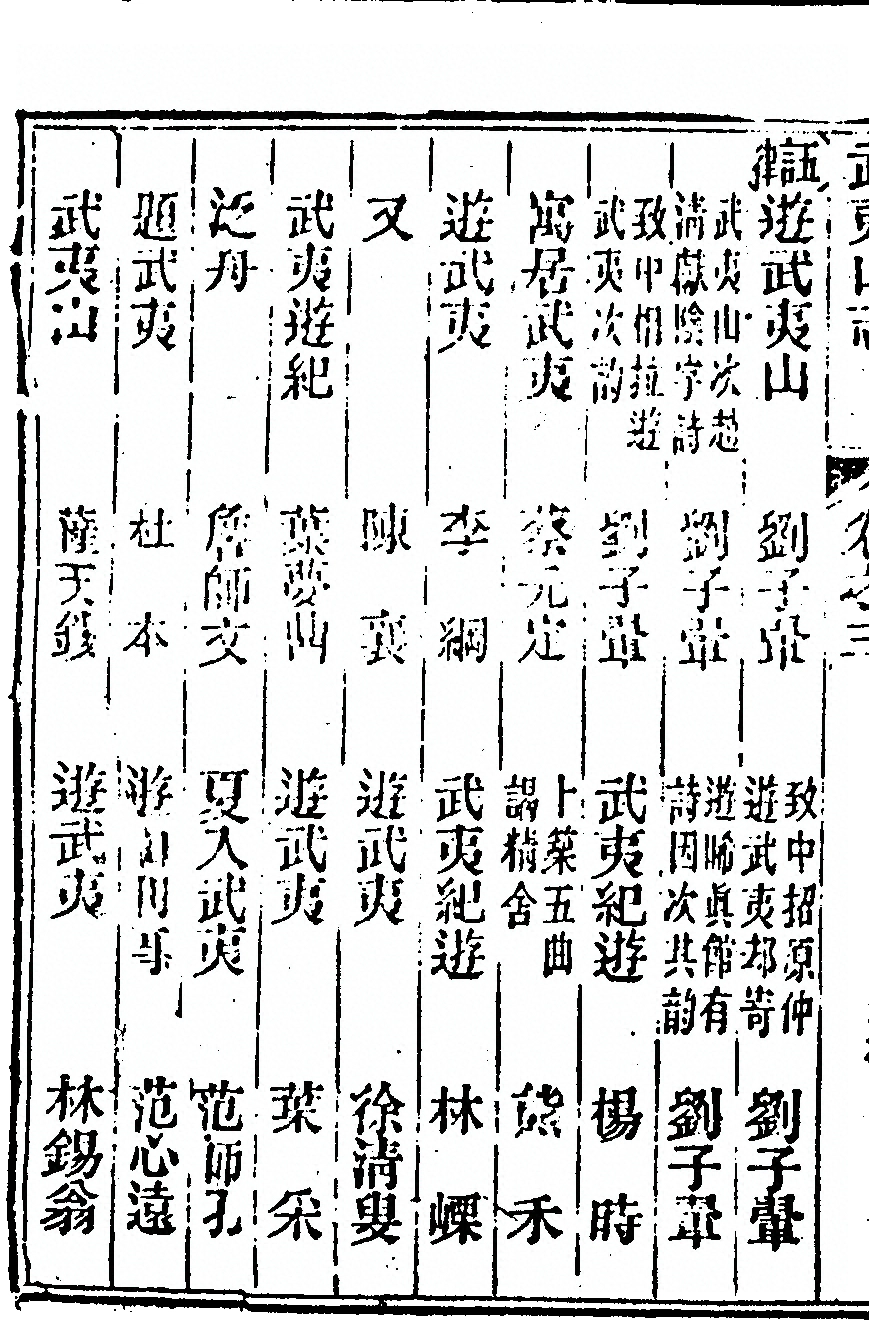 武夷山志 卷之三
五言律 遊武夷山 劉子翬 致中招原仲遊武夷却寄 劉子翬
武夷山次趙清獻陰字詩 劉子翬 遊晞眞館有詩因次其韵 劉子翬
致中相拉遊武夷次韵 劉子翬 武夷紀遊 楊時
寓居武夷 蔡元定 卜築五曲謁精舍 熊禾
遊武夷 李綱 武夷紀遊 林㟳
又 陳襄 遊武夷 徐清叟
武夷遊紀 葉夢 遊武夷 葉采
泛舟 詹師文 夏入武夷 范師孔
題武夷 杜本 遊 范心遠
武夷山 薩天錫 遊武夷 林錫翁